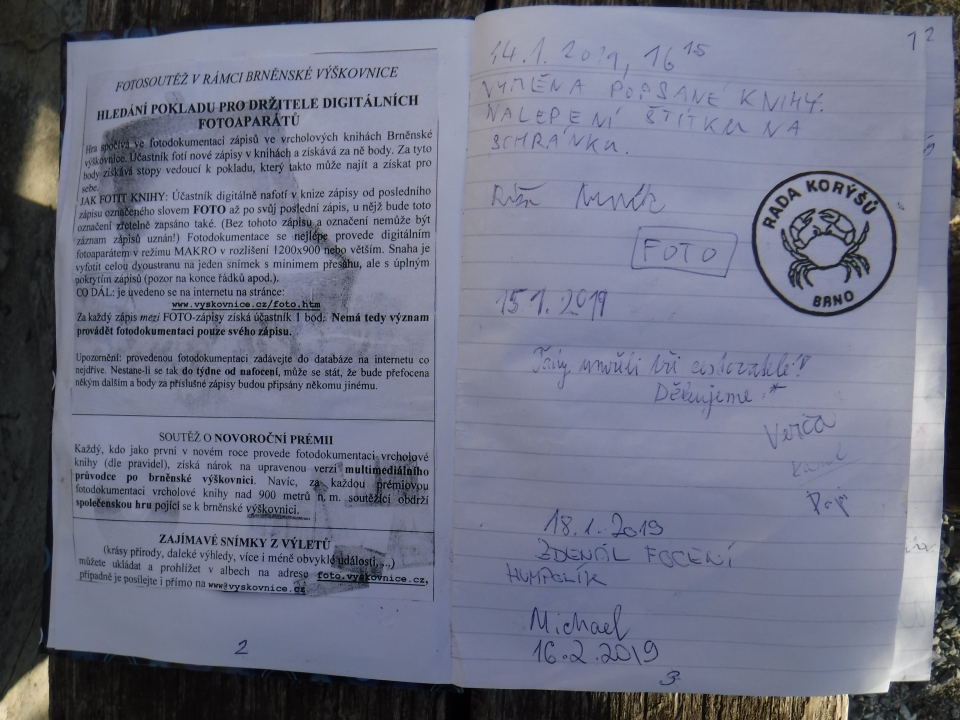 FOTOSOUTĚŽ V RÁMCI BRNĚNSKÉ VÝŠKOVNICE
HLEDÁNÍ POKLADU PRO DRŽITELE DIGITÁLNÍCH
FOTOAPARÁTŮ
Hra spočívá ve fotodokumentaci zápisů ve vrcholových knihách Brněnské
výškovnice. Účastník fotí nové zápisy v knihách a získává za ně body. Za tyto
body získává stopy vedoucí k pokladu, který takto může najít a získat pro
sebe.
JAK FOTIT KNIHU: Účastník digitálně nafotí v knize zápisy od posledního
zápisu označeného slovem FOTO až po svůj poslední zápis, u nějž bude toto
označení zřetelně zapsáno také. (Bez tohoto zápisu a označení nemůže být
záznam zápisů uznán!) Fotodokumentace se nejlépe provede digitálním
fotoaparátem v režimu MAKRO v rozlišení 1200x900 nebo větším. Snaha je
vyfotit celou dvoustranu na jeden snímek s minimem přesahu, ale s úplným
pokrytím zápisů (pozor na konce řádků apod.).
CO DÁL: je uvedeno se na internetu na stránce:
www.vyskovnice.cz/foto.htm
Za každý zápis mezi FOTO-zápisy získá účastník 1 bod. Nemá tedy význam
provádět fotodokumentaci pouze svého zápisu.
Upozornění: provedenou fotodokumentaci zadávejte do databáze na internetu co
nejdříve. Nestane-li se tak do týdne od nafocení, může se stát, že bude přefocena
někým dalším a body za příslušné zápisy budou připsány někomu jinému.
SOUTĚŽ O NOVOROČNÍ PRÉMII
Každý, kdo jako první v novém roce provede fotodokumentaci vrcholové
knihy (dle pravidel), získá nárok na upravenou verzi multimediálního
průvodce po brněnské výškovnici. Navíc, za každou prémiovou
fotodokumentaci vrcholové knihy nad 900 metrů n. m. soutěžící obdrží
společenskou hru pojící se k brněnské výškovnici.
ZAJÍMAVÉ SNÍMKY Z VÝLETŮ
(krásy přírody, daleké výhledy, více i méně obvyklé události, ...)
můžete ukládat a prohlížet v albech na adrese foto.vyskovnice.cz,
případně je posílejte i přímo na www@vyskovnice.cz
2
12
14.1. 2019, 16 15
VÝMĚNA POPSANÉ KNIHY.
NALEPENÍ ŠTÍTKU NA
SCHRÁNKU.
FOTO
RADA KORÝŠŮ
BRNO
15 1. 2019
Děkujeme
Verča
18.1. 2019
ZDENĎÁL FOCENÍ
HUMPOLÍK
Michael
16.2.2019
3